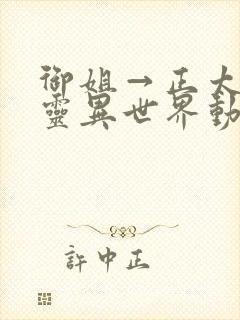 御姐→正太
靈異世界動
許中正